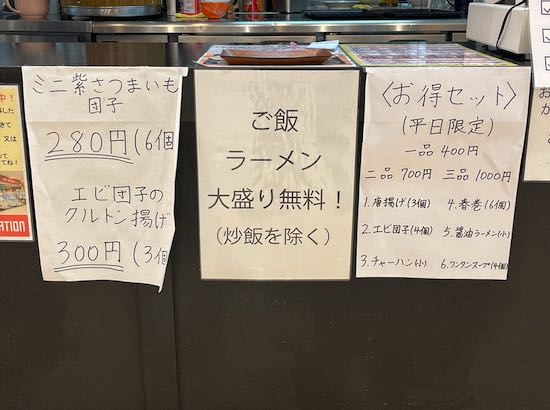 ミニ紫さつまいも
団子
280円(6個
エビ団子の
クルトン揚げ
300円(3個
ご飯
ラーメン
大盛り無料！
(炒飯を除く)
〈お得セット〉
(平日限定)
一品 400円
二品 700円 三品 1000円
1.唐揚げ(3個) 4.春巻(6個)
2.エビ団子(4個) 5.醤油ラーメン(小)
3.チャーハン(小) 6.ワンタンスープ(4個)